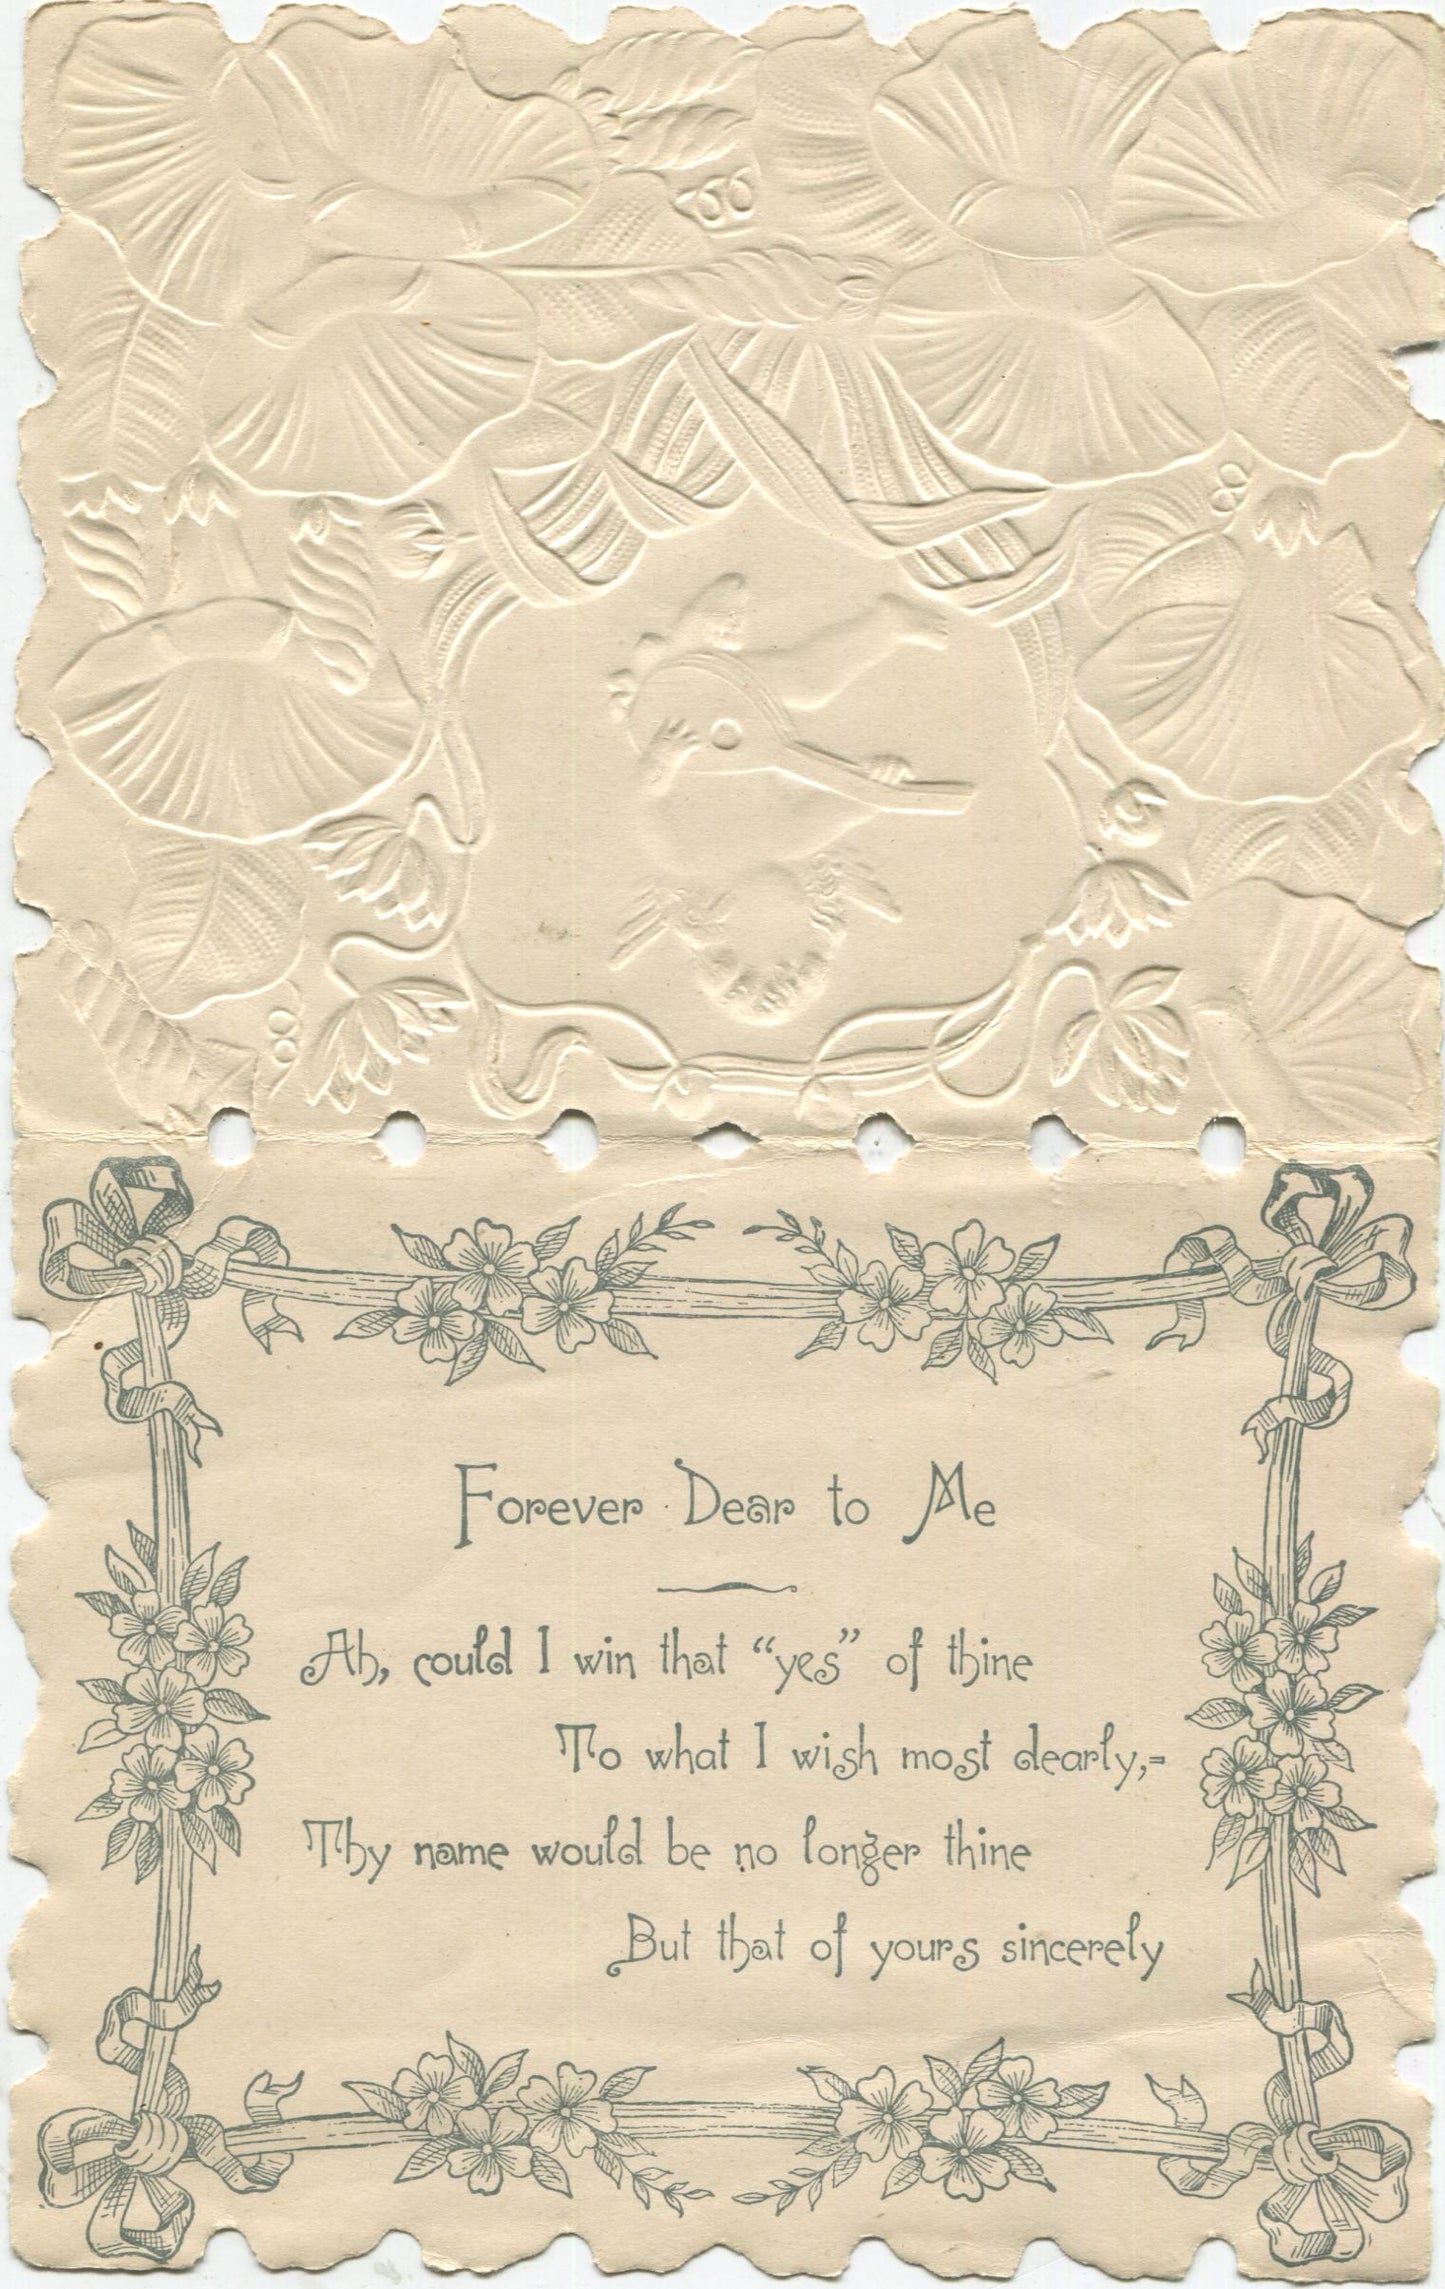 Forever Dear to Me
Ah, could I win that “yes” of thine
To what I wish most dearly,-
Thy name would be no longer thine
But that of yours sincerely